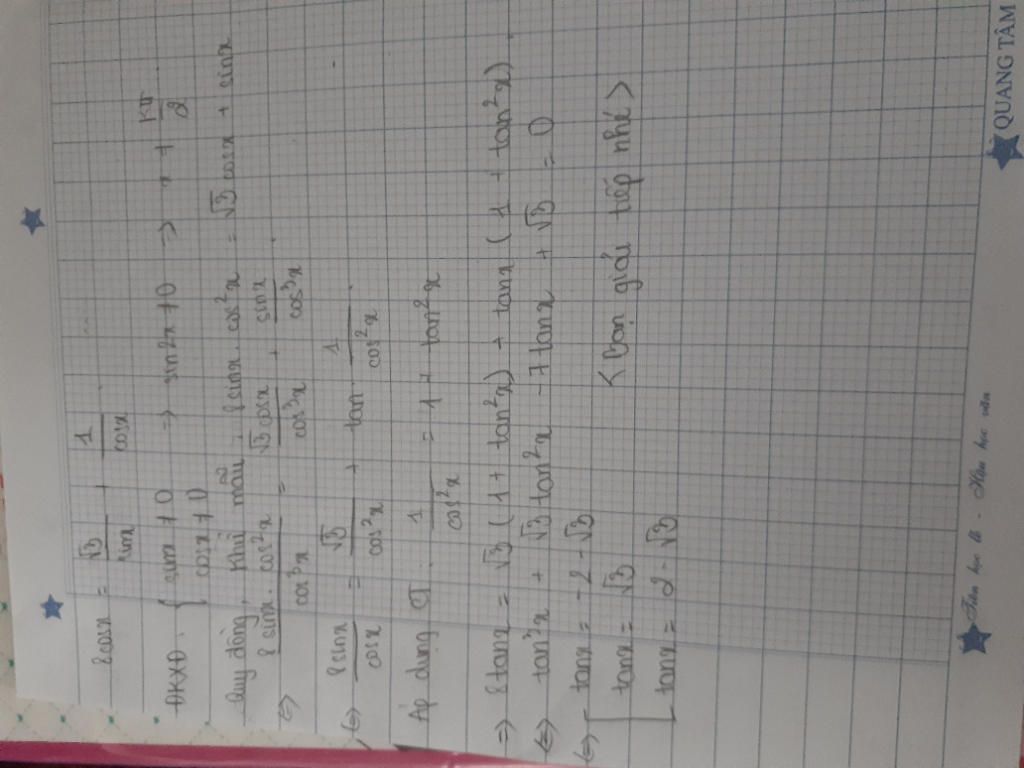 8cosx = √3/sinx + 1/cosx
ĐKXĐ: { sinx ≠ 0
cosx ≠ 0 => sin2x ≠ 0 => x ≠ kπ/2
Quy đồng, khử mẫu: 8sinx.cos²x = √3cosx + sinx
<=> 8sinx.cos²x/cos³x = √3cosx/cos³x + sinx/cos³x
<=> 8sinx/cosx = √3/cos²x + tan . 1/cos²x
Áp dụng CT: 1/cos²x = 1 + tan²x
=> 8tanx = √3(1 + tan²x) + tanx(1 + tan²x)
<=> tan³x + √3tan²x - 7tanx + √3 = 0
<=> [ tanx = -2 - √3
tanx = √3 <bạn giải tiếp nhé>
tanx = 2 - √3
Tiên học lễ - Hậu học văn
QUANG TÂM